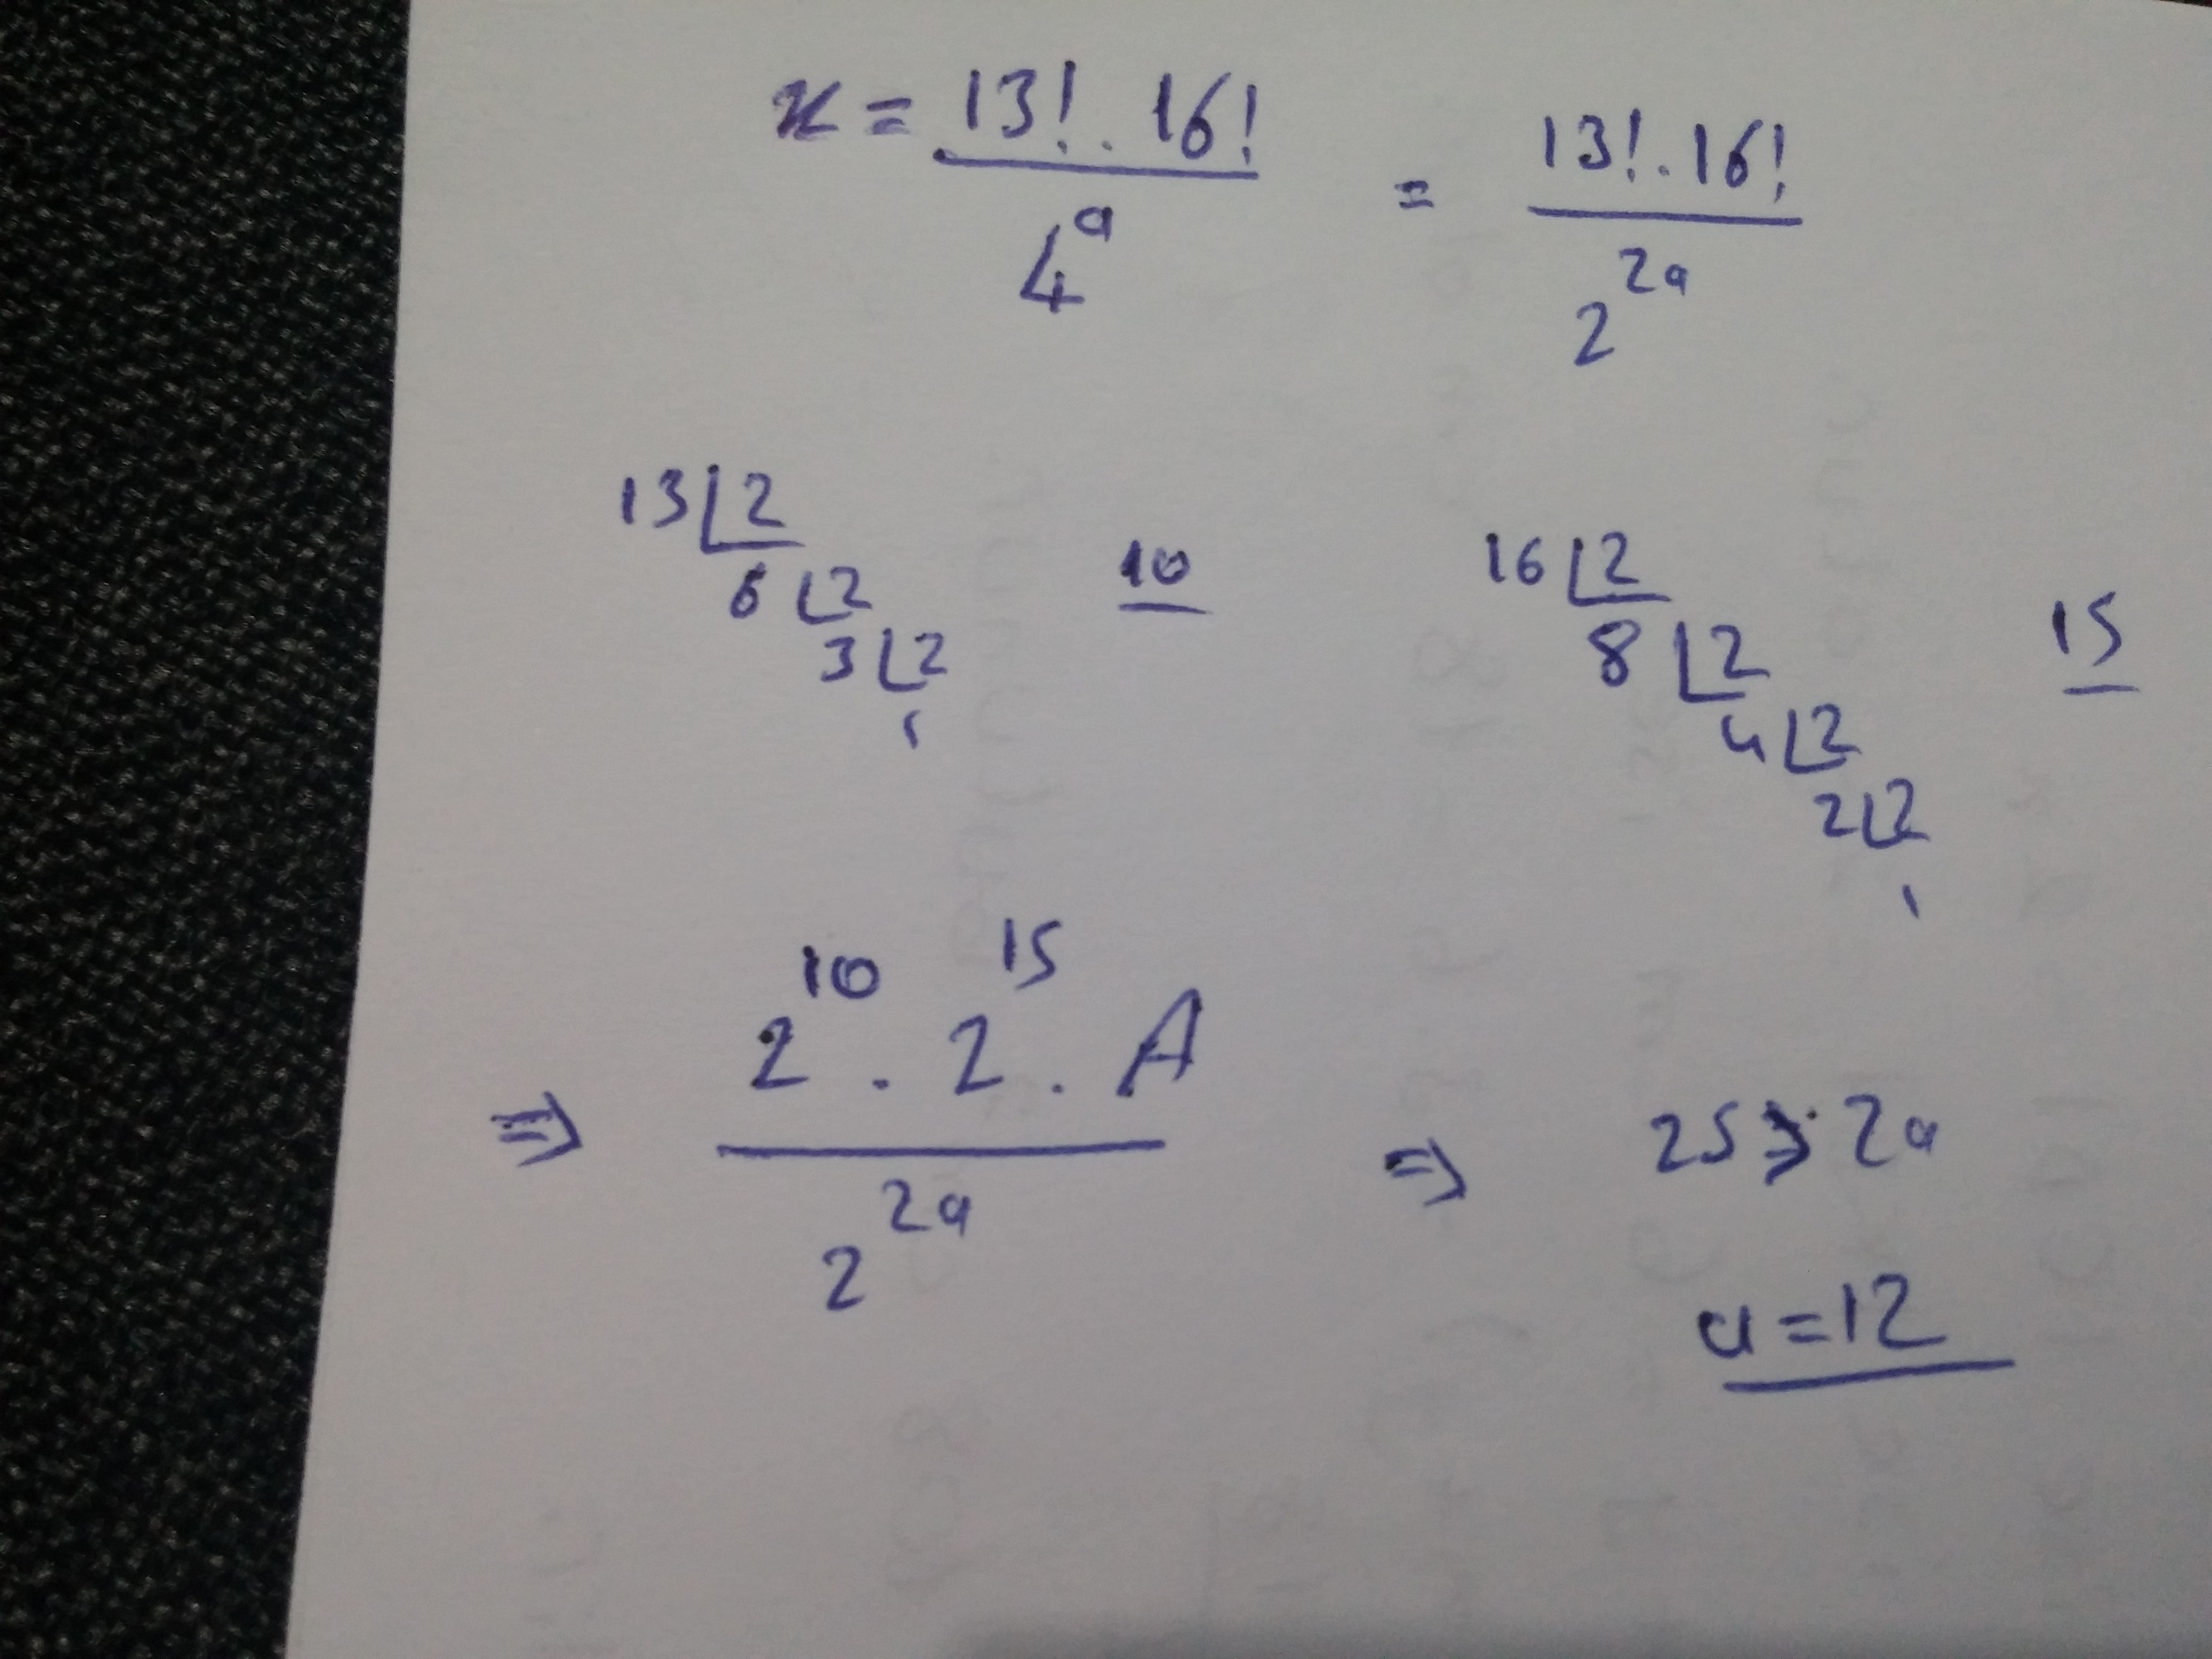 x = 13! . 16! / 4^a = 13! . 16! / 2^2a
13 | 2
6 | 2
3 | 2
1
10
16 | 2
8 | 2
4 | 2
2 | 2
1
15
⇒ 2^10 . 2^15 . A / 2^2a ⇒ 25 ≥ 2a
a = 12